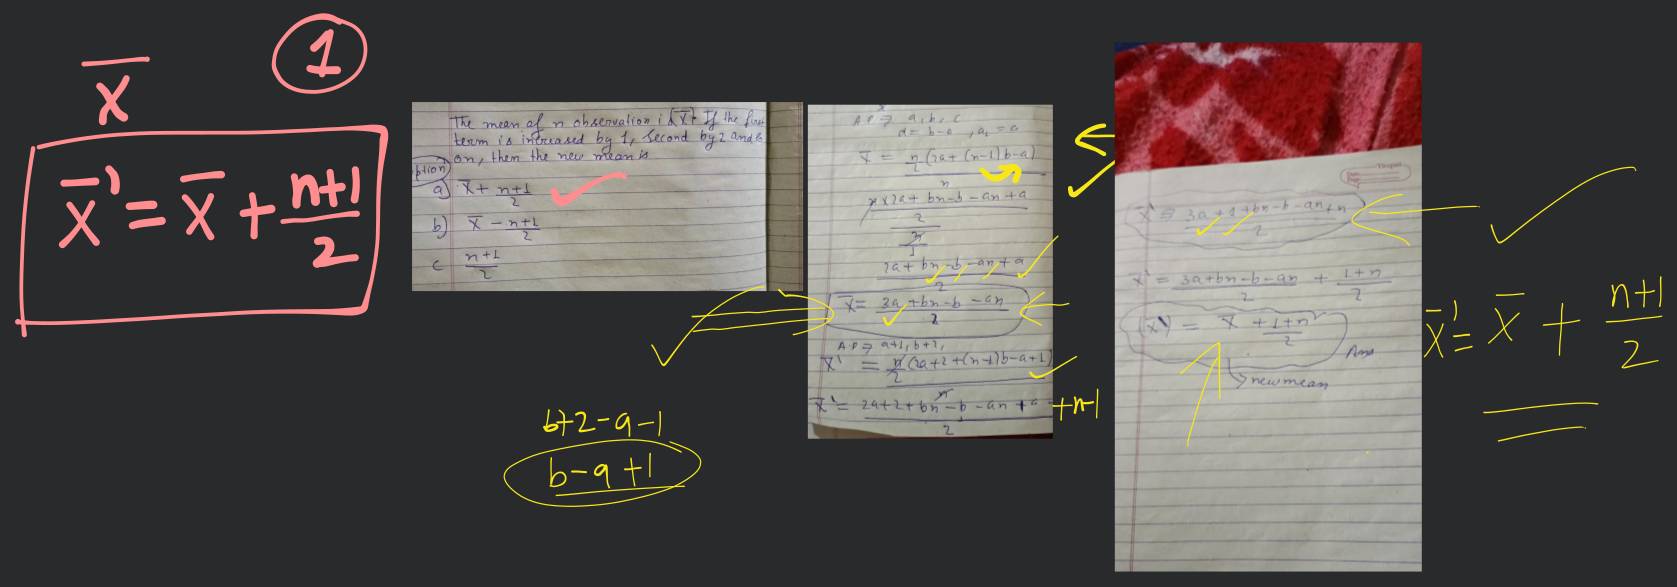 x̄
1
x̄' = x̄ + n+1/2
The mean of n observation is (x̄). If the first
term is increased by 1, second by 2 and so
on, then the new mean is
ption
a) x̄ + n+1/2
b) x̄ - n+1/2
c n+1/2
A.P ⇒ a, b, c
d = b-a , a₁ = a
x̄ = n/2 (2a + (n-1) b-a)
n
n × 2a + bn - b - an + a
2
n
1
2a + bn - b - an + a
2
x̄ = 3a + bn - b - an
2
A.P ⇒ a+1, b+2,
x̄' = n/2 (2a+2+(n-1) b-a+1)
n
x̄' = 2a+2+bn-b-an+a +n-1
2
b+2-a-1
b-a+1
x̄' = 3a+1+bn-b-an+n
2
x̄' = 3a+bn-b-an/2 + 1+n/2
(x̄') = x̄ + 1+n/2
Ans
new mean
x̄' = x̄ + n+1/2